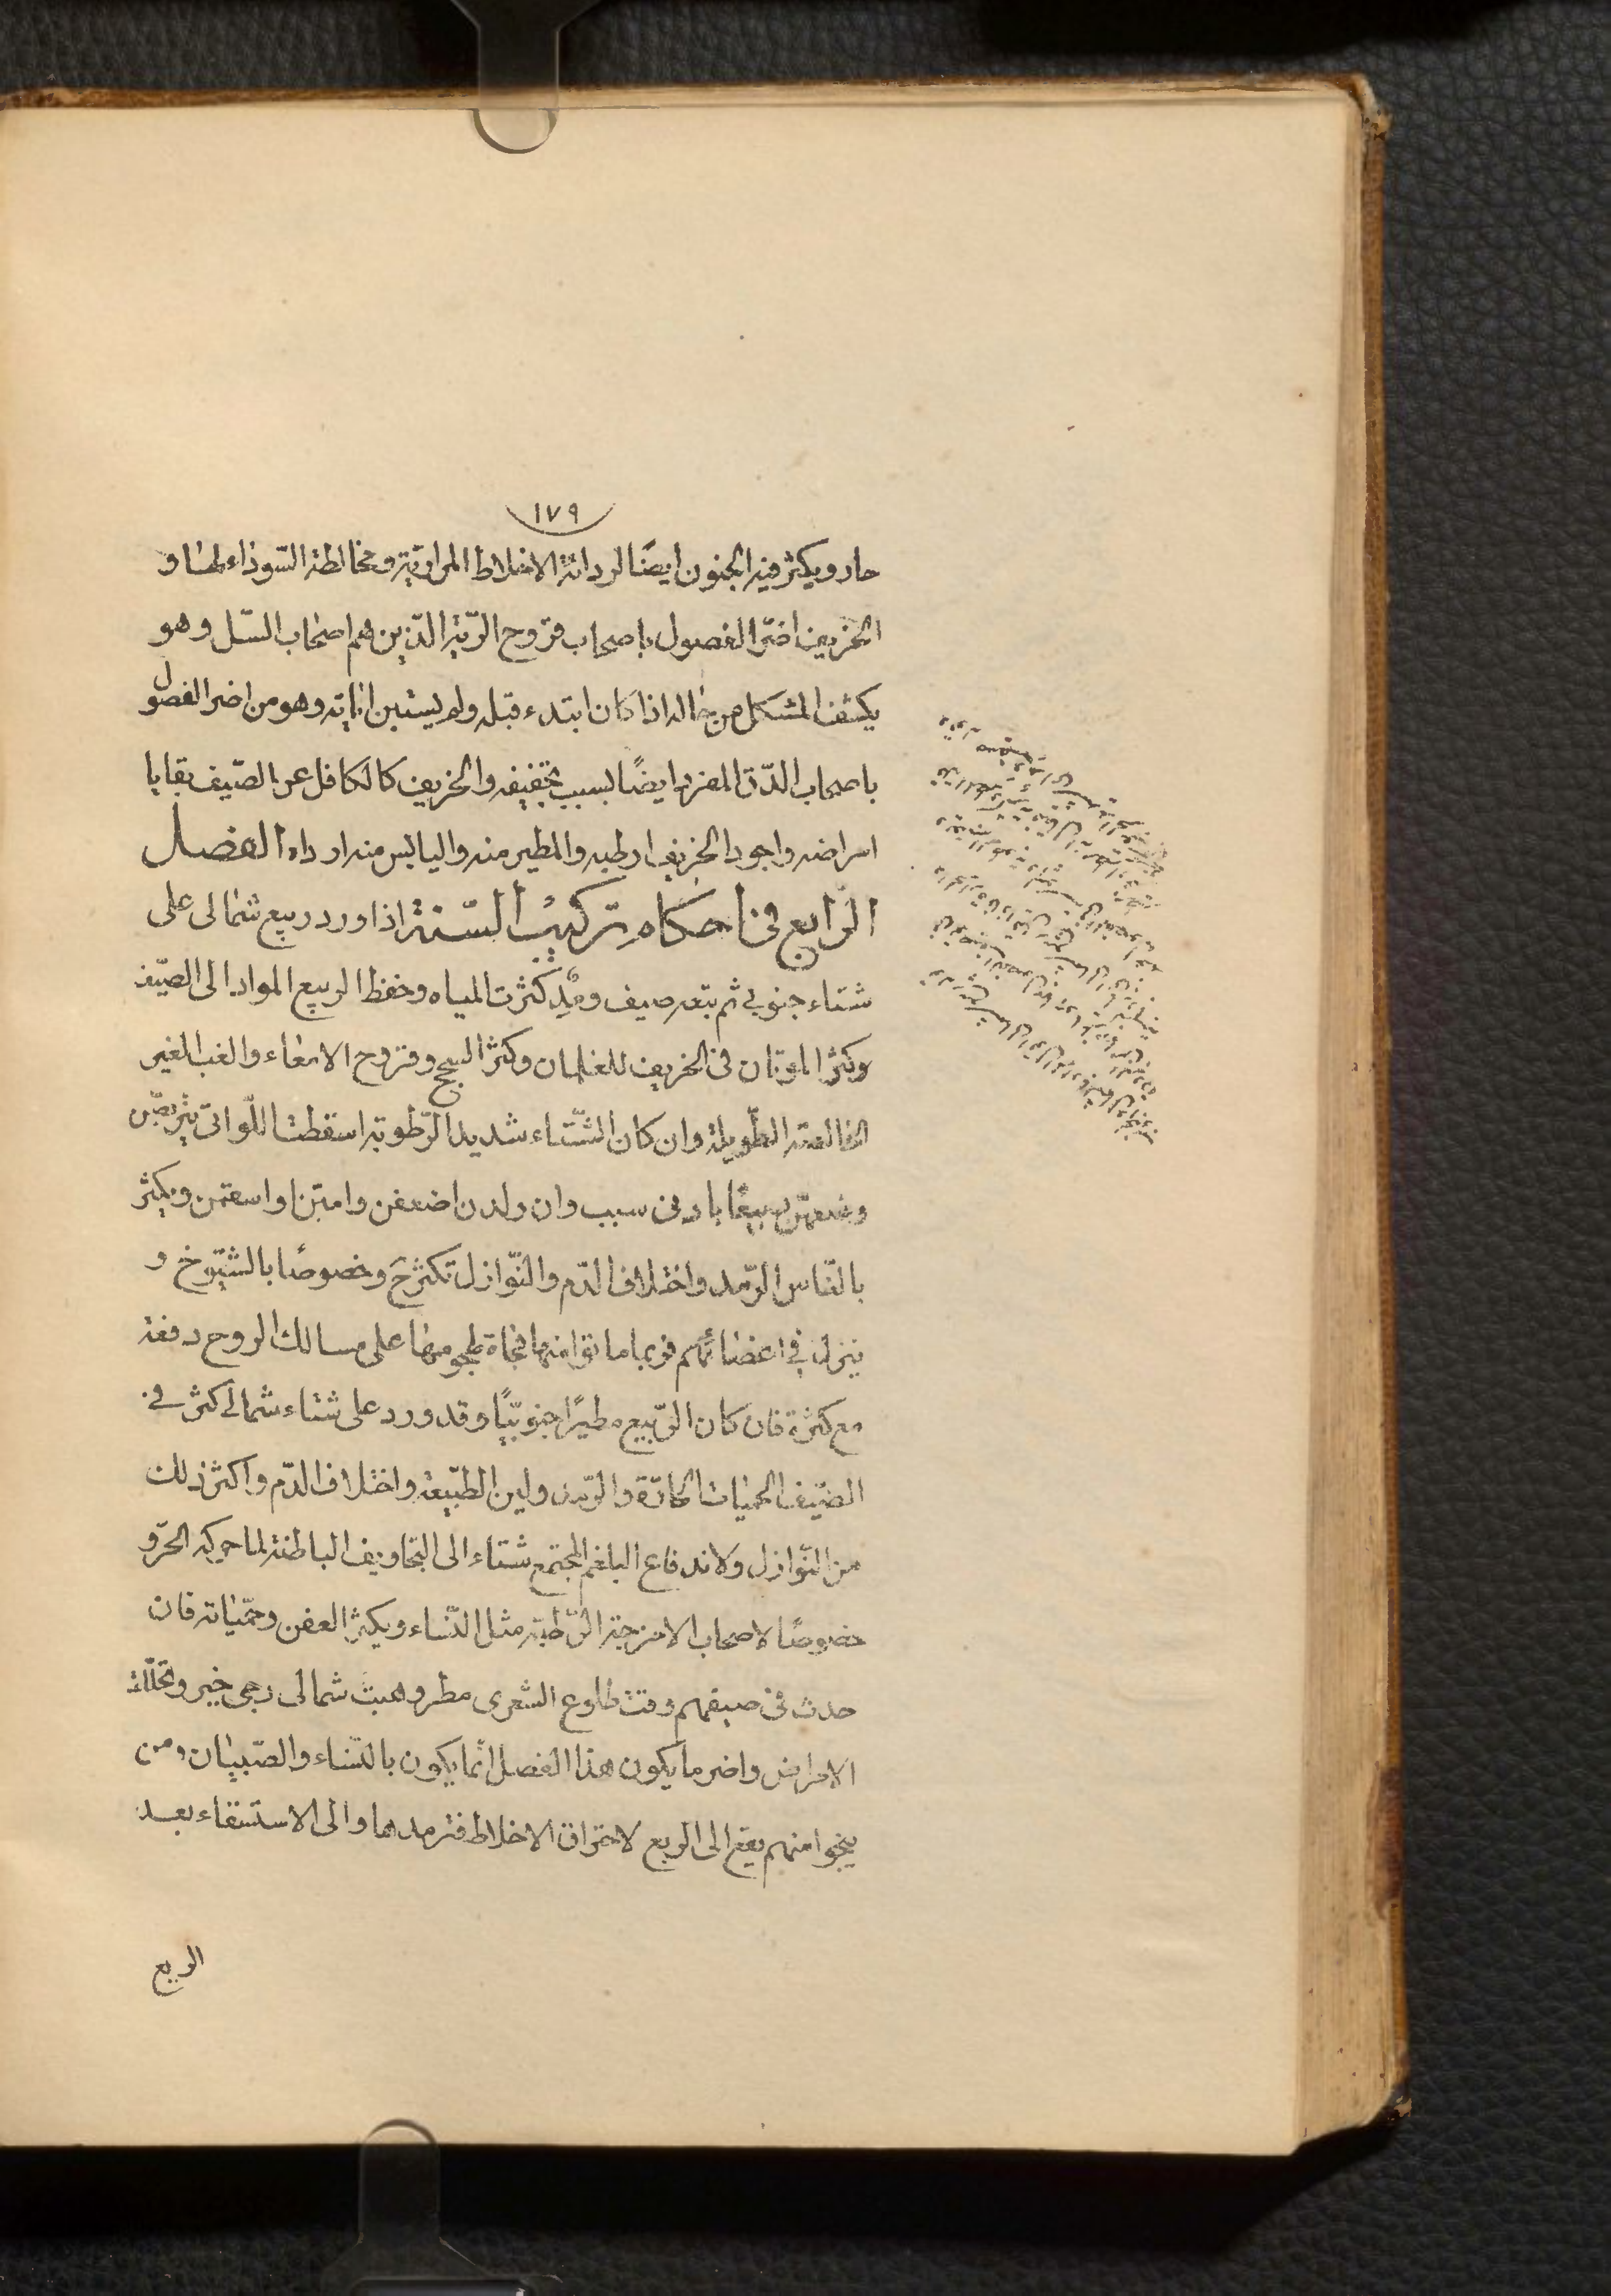 ١٧٩
حار ويكثر فيه الجنون ايضًا لردائة الاخلاط المراريّة ومخالطة السّوداء لها و
الخريف اضرّ الفصول باصحاب قروح الرّية الّذين هم اصحاب السّل وهو
يكشف المشكل من حاله اذا كان ابتدء قبله ولم يستبن اياته وهو من اضر الفصول
باصحاب الدّق المفرد ايضًا بسبب تجفيفه والخريف كالكافل عن الصّيف بقايا
امراضه واجود الخريف ارطبه والمطير منه واليابس منه ارداه الفصل
الرّابع فى احكام تركيب السّنة اذا ورد ربيع شمالى على
شتاء جنوبي ثم تبعه صيف ومدّ كثرت المياه وحفظ الربيع المواد الى الصّيف
وكثر الموتان فى الخريف للغلمان وكثر السحج وقروح الامعاء والغب الغير
الخالصة الطّويلة وان كان الشّتاء شديد الرّطوبة اسقطت اللّواتى يتربصن
وضعهن ربيعًا بادنى سبب وان ولدن اضعفن وامتن او اسقمن ويكثر
بالنّاس الرّمد واختلاف الدّم والنّوازل تكثر ح وخصوصًا بالشّيوخ و
ينزل في اعضائهم فربما ماتوا منها فجاة لهجومها على مسالك الروح دفعة
مع كثرة فان كان الرّبيع مطيرًا جنوبيّا وقد ورد على شتاء شمالي كثر في
الصّيف الحميات الحادّة والرّمد ولين الطّبيعة واختلاف الدّم واكثر ذلك
من النّوازل ولاندفاع البلغم المجتمع شتاء الى التجاويف الباطنة لما حركه الحرّ و
خصوصًا لاصحاب الامزجة الرّطبة مثل النّساء ويكثر العفن وحمّياته فان
حدث فى صيفهم وقت طلوع الشعرى مطر وهبت شمالى رجى خير وتحلّلت
الامراض واضر ما يكون هذا الفصل انّما يكون بالنّساء والصّبيان ومن
ينجوا منهم يقع الى الربع لاحتراق الاخلاط فترمدها والى الاستسقاء بعد
الربع